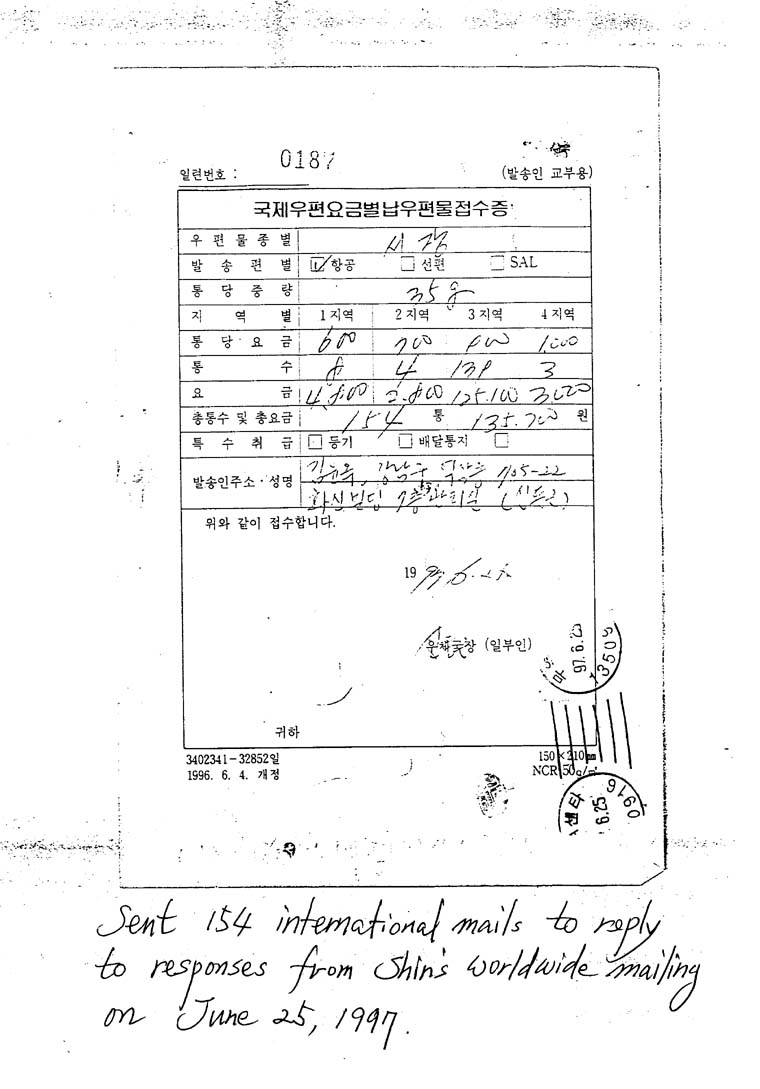 0187
일련번호 :
(발송인 교부용)
국제우편요금별납우편물접수증
우편물종별 서장
발송편별 항공 선편 SAL
통당중량 35g
지역별 1지역 2지역 3지역 4지역
통당요금 600 700 900 1,000
통수 8 4 139 3
요금 4,800 2,800 125,100 3000
총통수 및 총요금 154 통 135,700 원
특수취급 등기 배달통지
발송인주소·성명 강남구 역삼동 705-22
화신빌딩 7층 관리실
위와 같이 접수합니다.
19 97. 6. 25.
우체국장 (일부인)
97. 6. 25
13509
귀하
3402341-32852일
1996. 6. 4. 개정
150×210㎜
NCR 50g/㎡
센타
6.25
0916
Sent 154 international mails to reply
to responses from Shin's worldwide mailing
on June 25, 1997.